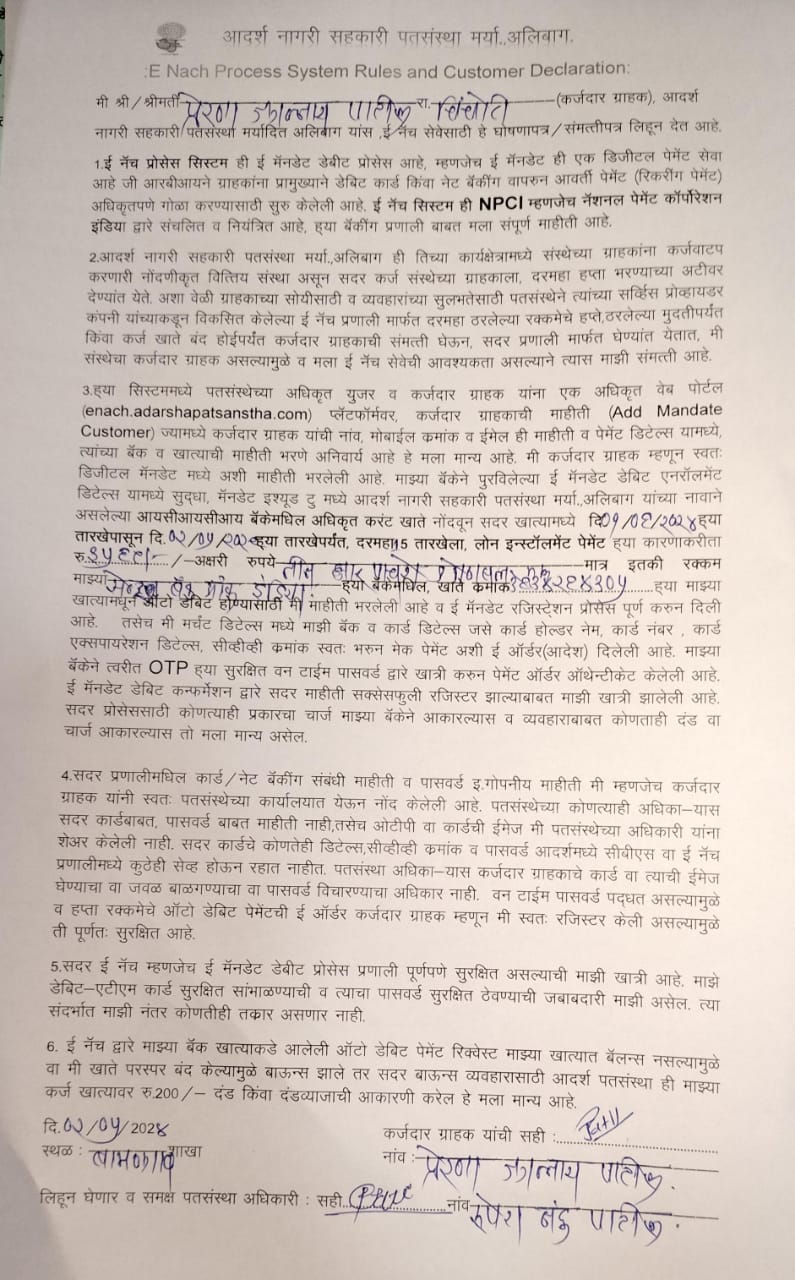 आदर्श नागरी सहकारी पतसंस्था मर्या.,अलिबाग.
:E Nach Process System Rules and Customer Declaration:
मी श्री/श्रीमती प्रेरणा पाटील रा. चिंचोटी (कर्जदार ग्राहक), आदर्श
नागरी सहकारी पतसंस्था मर्यादित अलिबाग यांस ,ई नॅच सेवेसाठी हे घोषणापत्र/संमत्तीपत्र लिहून देत आहे.
1.ई नॅच प्रोसेस सिस्टम ही ई मॅनडेट डेबीट प्रोसेस आहे, म्हणजेच ई मॅनडेट ही एक डिजीटल पेमेंट सेवा
आहे जी आरबीआयने ग्राहकांना प्रामुख्याने डेबिट कार्ड किंवा नेट बॅकींग वापरुन आवर्ती पेमेंट (रिकरींग पेमेंट)
अधिकृतपणे गोळा करण्यासाठी सुरु केलेली आहे. ई नॅच सिस्टम ही NPCI म्हणजेच नॅशनल पेमेंट कॉर्पोरेशन
इंडिया द्वारे संचलित व नियंत्रित आहे, ह्या बॅकींग प्रणाली बाबत मला संपूर्ण माहीती आहे.
2.आदर्श नागरी सहकारी पतसंस्था मर्या.,अलिबाग ही तिच्या कार्यक्षेत्रामध्ये संस्थेच्या ग्राहकांना कर्जवाटप
करणारी नोंदणीकृत वित्तिय संस्था असून सदर कर्ज संस्थेच्या ग्राहकाला, दरमहा हप्ता भरण्याच्या अटीवर
देण्यांत येते. अशा वेळी ग्राहकाच्या सोयीसाठी व व्यवहारांच्या सुलभतेसाठी पतसंस्थेने त्यांच्या सर्व्हिस प्रोव्हायडर
कंपनी यांच्याकडून विकसित केलेल्या ई नॅच प्रणाली मार्फत दरमहा ठरलेल्या रक्कमेचे हप्ते,ठरलेल्या मुदतीपर्यंत
किंवा कर्ज खाते बंद होईपर्यंत कर्जदार ग्राहकाची संमत्ती घेऊन, सदर प्रणाली मार्फत घेण्यांत येतात, मी
संस्थेचा कर्जदार ग्राहक असल्यामुळे व मला ई नॅच सेवेची आवश्यकता असल्याने त्यास माझी संमत्ती आहे.
3.ह्या सिस्टममध्ये पतसंस्थेच्या अधिकृत युजर व कर्जदार ग्राहक यांना एक अधिकृत वेब पोर्टल
(enach.adarshapatsanstha.com) प्लॅटफॉर्मवर, कर्जदार ग्राहकाची माहीती (Add Mandate
Customer) ज्यामध्ये कर्जदार ग्राहक यांची नांव, मोबाईल कमांक व ईमेल ही माहीती व पेमेंट डिटेल्स यामध्ये,
त्यांच्या बॅक व खात्याची माहीती भरणे अनिवार्य आहे हे मला मान्य आहे. मी कर्जदार ग्राहक म्हणून स्वतः
डिजीटल मॅनडेट मध्ये अशी माहीती भरलेली आहे. माझ्या बॅकेने पुरविलेल्या ई मॅनडेट डेबिट एनरॉलमेंट
डिटेल्स यामध्ये सुद्धा, मॅनडेट इश्यूड टु मध्ये आदर्श नागरी सहकारी पतसंस्था मर्या.,अलिबाग यांच्या नावाने
असलेल्या आयसीआयसीआय बॅकेमधिल अधिकृत करंट खाते नोंदवून सदर खात्यामध्ये दि०१/०६/२०२४ ह्या
तारखेपासून दि.०२/०५/ ह्या तारखेपर्यंत, दरमहा15 तारखेला, लोन इन्स्टॉलमेंट पेमेंट ह्या कारणाकरीता
रु. /-अक्षरी रुपये तीस मात्र इतकी रक्कम
माझ्या बँक ऑफ इंडिया ह्या बॅकेमधिल, खाते कमांक ह्या माझ्या
खात्यामधून ऑटो डेबिट होण्यासाठी मी माहीती भरलेली आहे व ई मॅनडेट रजिस्ट्रेशन प्रोसेस पूर्ण करुन दिली
आहे. तसेच मी मर्चंट डिटेल्स मध्ये माझी बॅक व कार्ड डिटेल्स जसे कार्ड होल्डर नेम, कार्ड नंबर , कार्ड
एक्सपायरेशन डिटेल्स, सीव्हीव्ही कमांक स्वतः भरुन मेक पेमेंट अशी ई ऑर्डर(आदेश) दिलेली आहे. माझ्या
बॅकेने त्वरीत OTP ह्या सुरक्षित वन टाईम पासवर्ड द्वारे खात्री करुन पेमेंट ऑर्डर ऑथेन्टीकेट केलेली आहे.
ई मॅनडेट डेबिट कन्फर्मेशन द्वारे सदर माहीती सक्सेसफुली रजिस्टर झाल्याबाबत माझी खात्री झालेली आहे.
सदर प्रोसेससाठी कोणत्याही प्रकारचा चार्ज माझ्या बॅकेने आकारल्यास व व्यवहाराबाबत कोणताही दंड वा
चार्ज आकारल्यास तो मला मान्य असेल.
4.सदर प्रणालीमधिल कार्ड/नेट बॅकींग संबंधी माहीती व पासवर्ड इ.गोपनीय माहीती मी म्हणजेच कर्जदार
ग्राहक यांनी स्वतः पतसंस्थेच्या कार्यालयात येऊन नोंद केलेली आहे. पतसंस्थेच्या कोणत्याही अधिका–यास
सदर कार्डबाबत, पासवर्ड बाबत माहीती नाही,तसेच ओटीपी वा कार्डची ईमेज मी पतसंस्थेच्या अधिकारी यांना
शेअर केलेली नाही. सदर कार्डचे कोणतेही डिटेल्स,सीव्हीव्ही कमांक व पासवर्ड आदर्शमध्ये सीबीएस वा ई नॅच
प्रणालीमध्ये कुठेही सेव्ह होऊन रहात नाहीत. पतसंस्था अधिका–यास कर्जदार ग्राहकाचे कार्ड वा त्याची ईमेज
घेण्याचा वा जवळ बाळगण्याचा वा पासवर्ड विचारण्याचा अधिकार नाही. वन टाईम पासवर्ड पद्धत असल्यामुळे
व हप्ता रक्कमेचे ऑटो डेबिट पेमेंटची ई ऑर्डर कर्जदार ग्राहक म्हणून मी स्वतः रजिस्टर केली असल्यामुळे
ती पूर्णतः सुरक्षित आहे.
5.सदर ई नॅच म्हणजेच ई मॅनडेट डेबीट प्रोसेस प्रणाली पूर्णपणे सुरक्षित असल्याची माझी खात्री आहे. माझे
डेबिट–एटीएम कार्ड सुरक्षित सांभाळण्याची व त्याचा पासवर्ड सुरक्षित ठेवण्याची जबाबदारी माझी असेल. त्या
संदर्भात माझी नंतर कोणतीही तकार असणार नाही.
6. ई नॅच द्वारे माझ्या बॅक खात्याकडे आलेली ऑटो डेबिट पेमेंट रिक्वेस्ट माझ्या खात्यात बॅलन्स नसल्यामुळे
वा मी खाते परस्पर बंद केल्यामुळे बाऊन्स झाले तर सदर बाऊन्स व्यवहारासाठी आदर्श पतसंस्था ही माझ्या
कर्ज खात्यावर रु.200/– दंड किंवा दंडव्याजाची आकारणी करेल हे मला मान्य आहे.
दि.०२/०५/2024
कर्जदार ग्राहक यांची सही :
स्थळ : शाखा
नांव :- प्रेरणा पाटील.
लिहून घेणार व समक्ष पतसंस्था अधिकारी : सही नांव रुपेश बंडु पाटील.